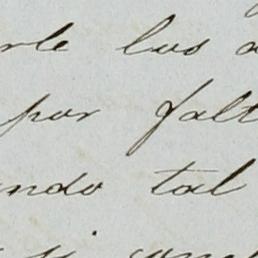 rle los
por falt
ndo tal